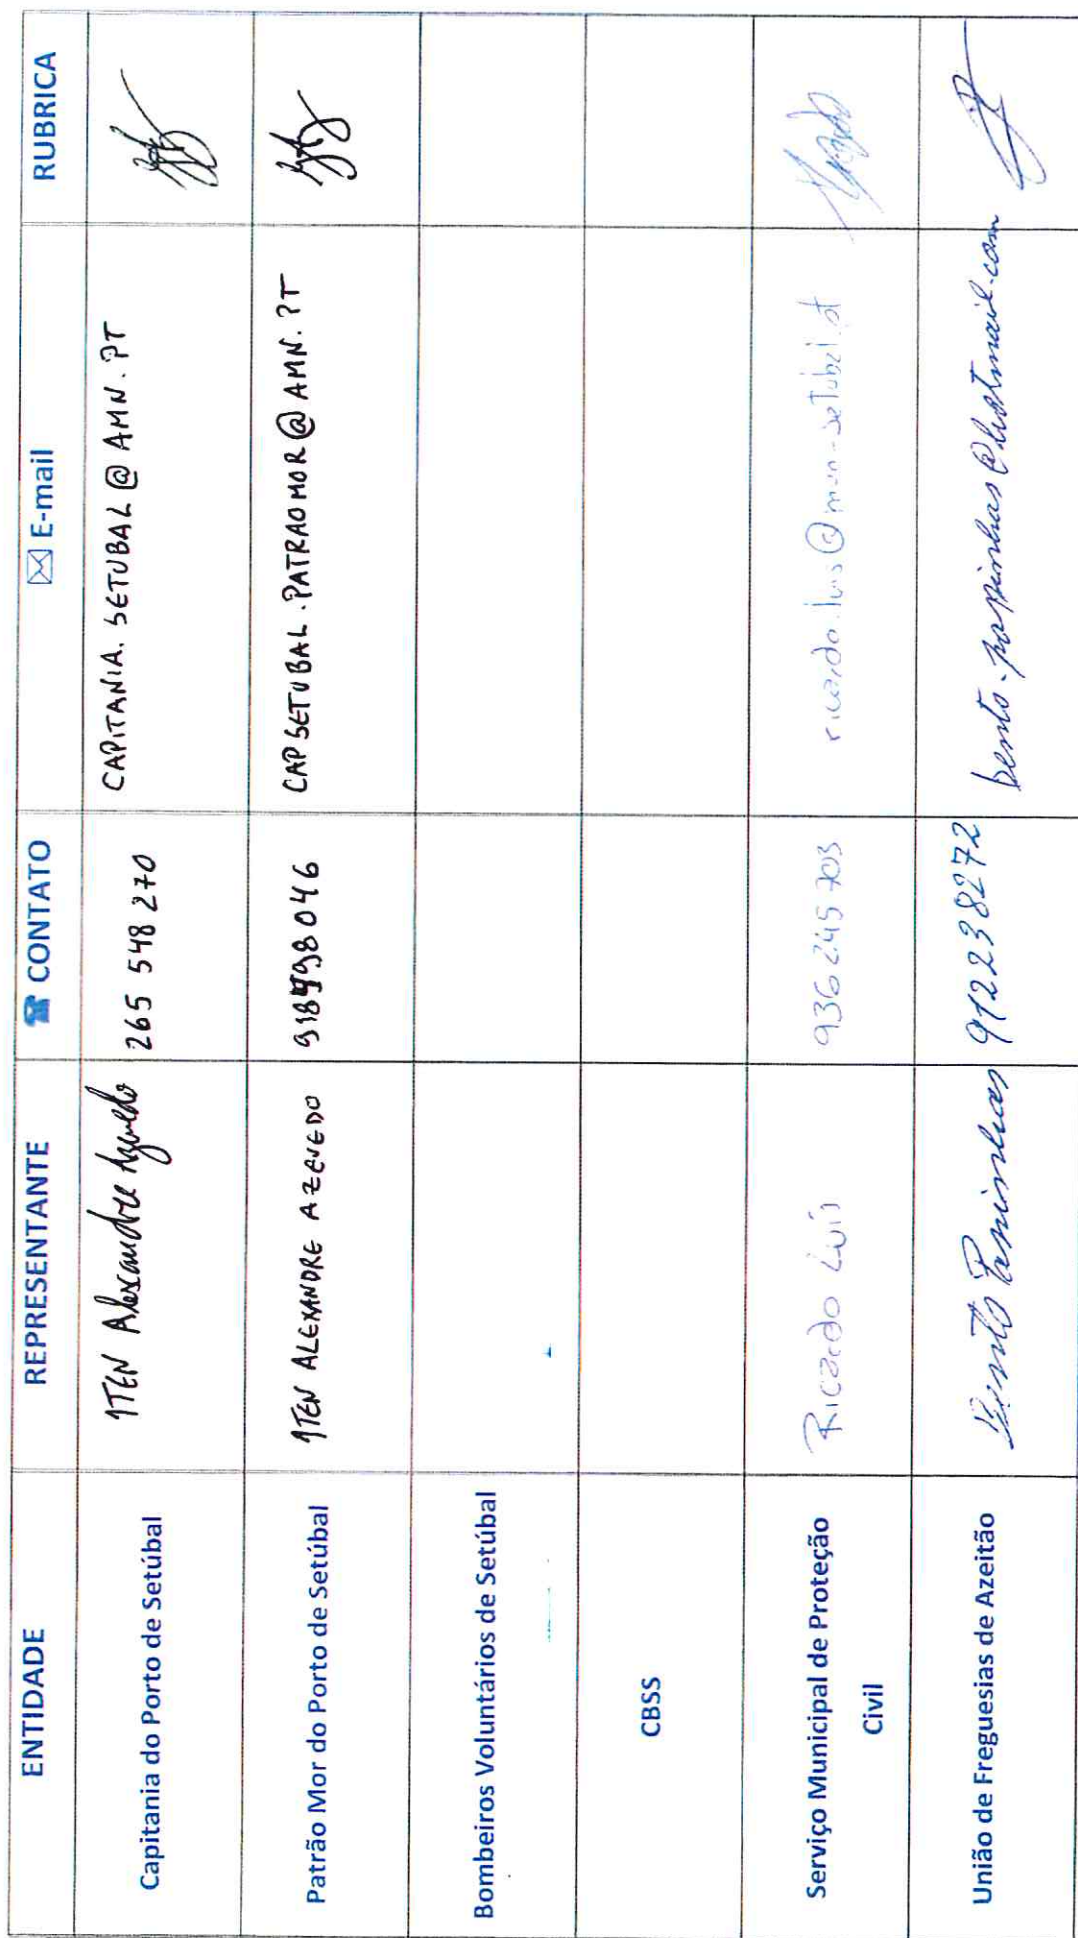 ENTIDADE REPRESENTANTE CONTATO E-mail RUBRICA
Capitania do Porto de Setúbal 1TEN Alexandre Azevedo 265 548 270 CAPITANIA.SETUBAL@AMN.PT
Patrão Mor do Porto de Setúbal 1TEN ALEXANDRE AZEVEDO CAPSETUBAL.PATRAOMOR@AMN.PT
Bombeiros Voluntários de Setúbal
CBSS
Serviço Municipal de Proteção Ricardo Luís 936 245 703 ricardo.luis@mun-setubal.pt
Civil
União de Freguesias de Azeitão Bento 912238272